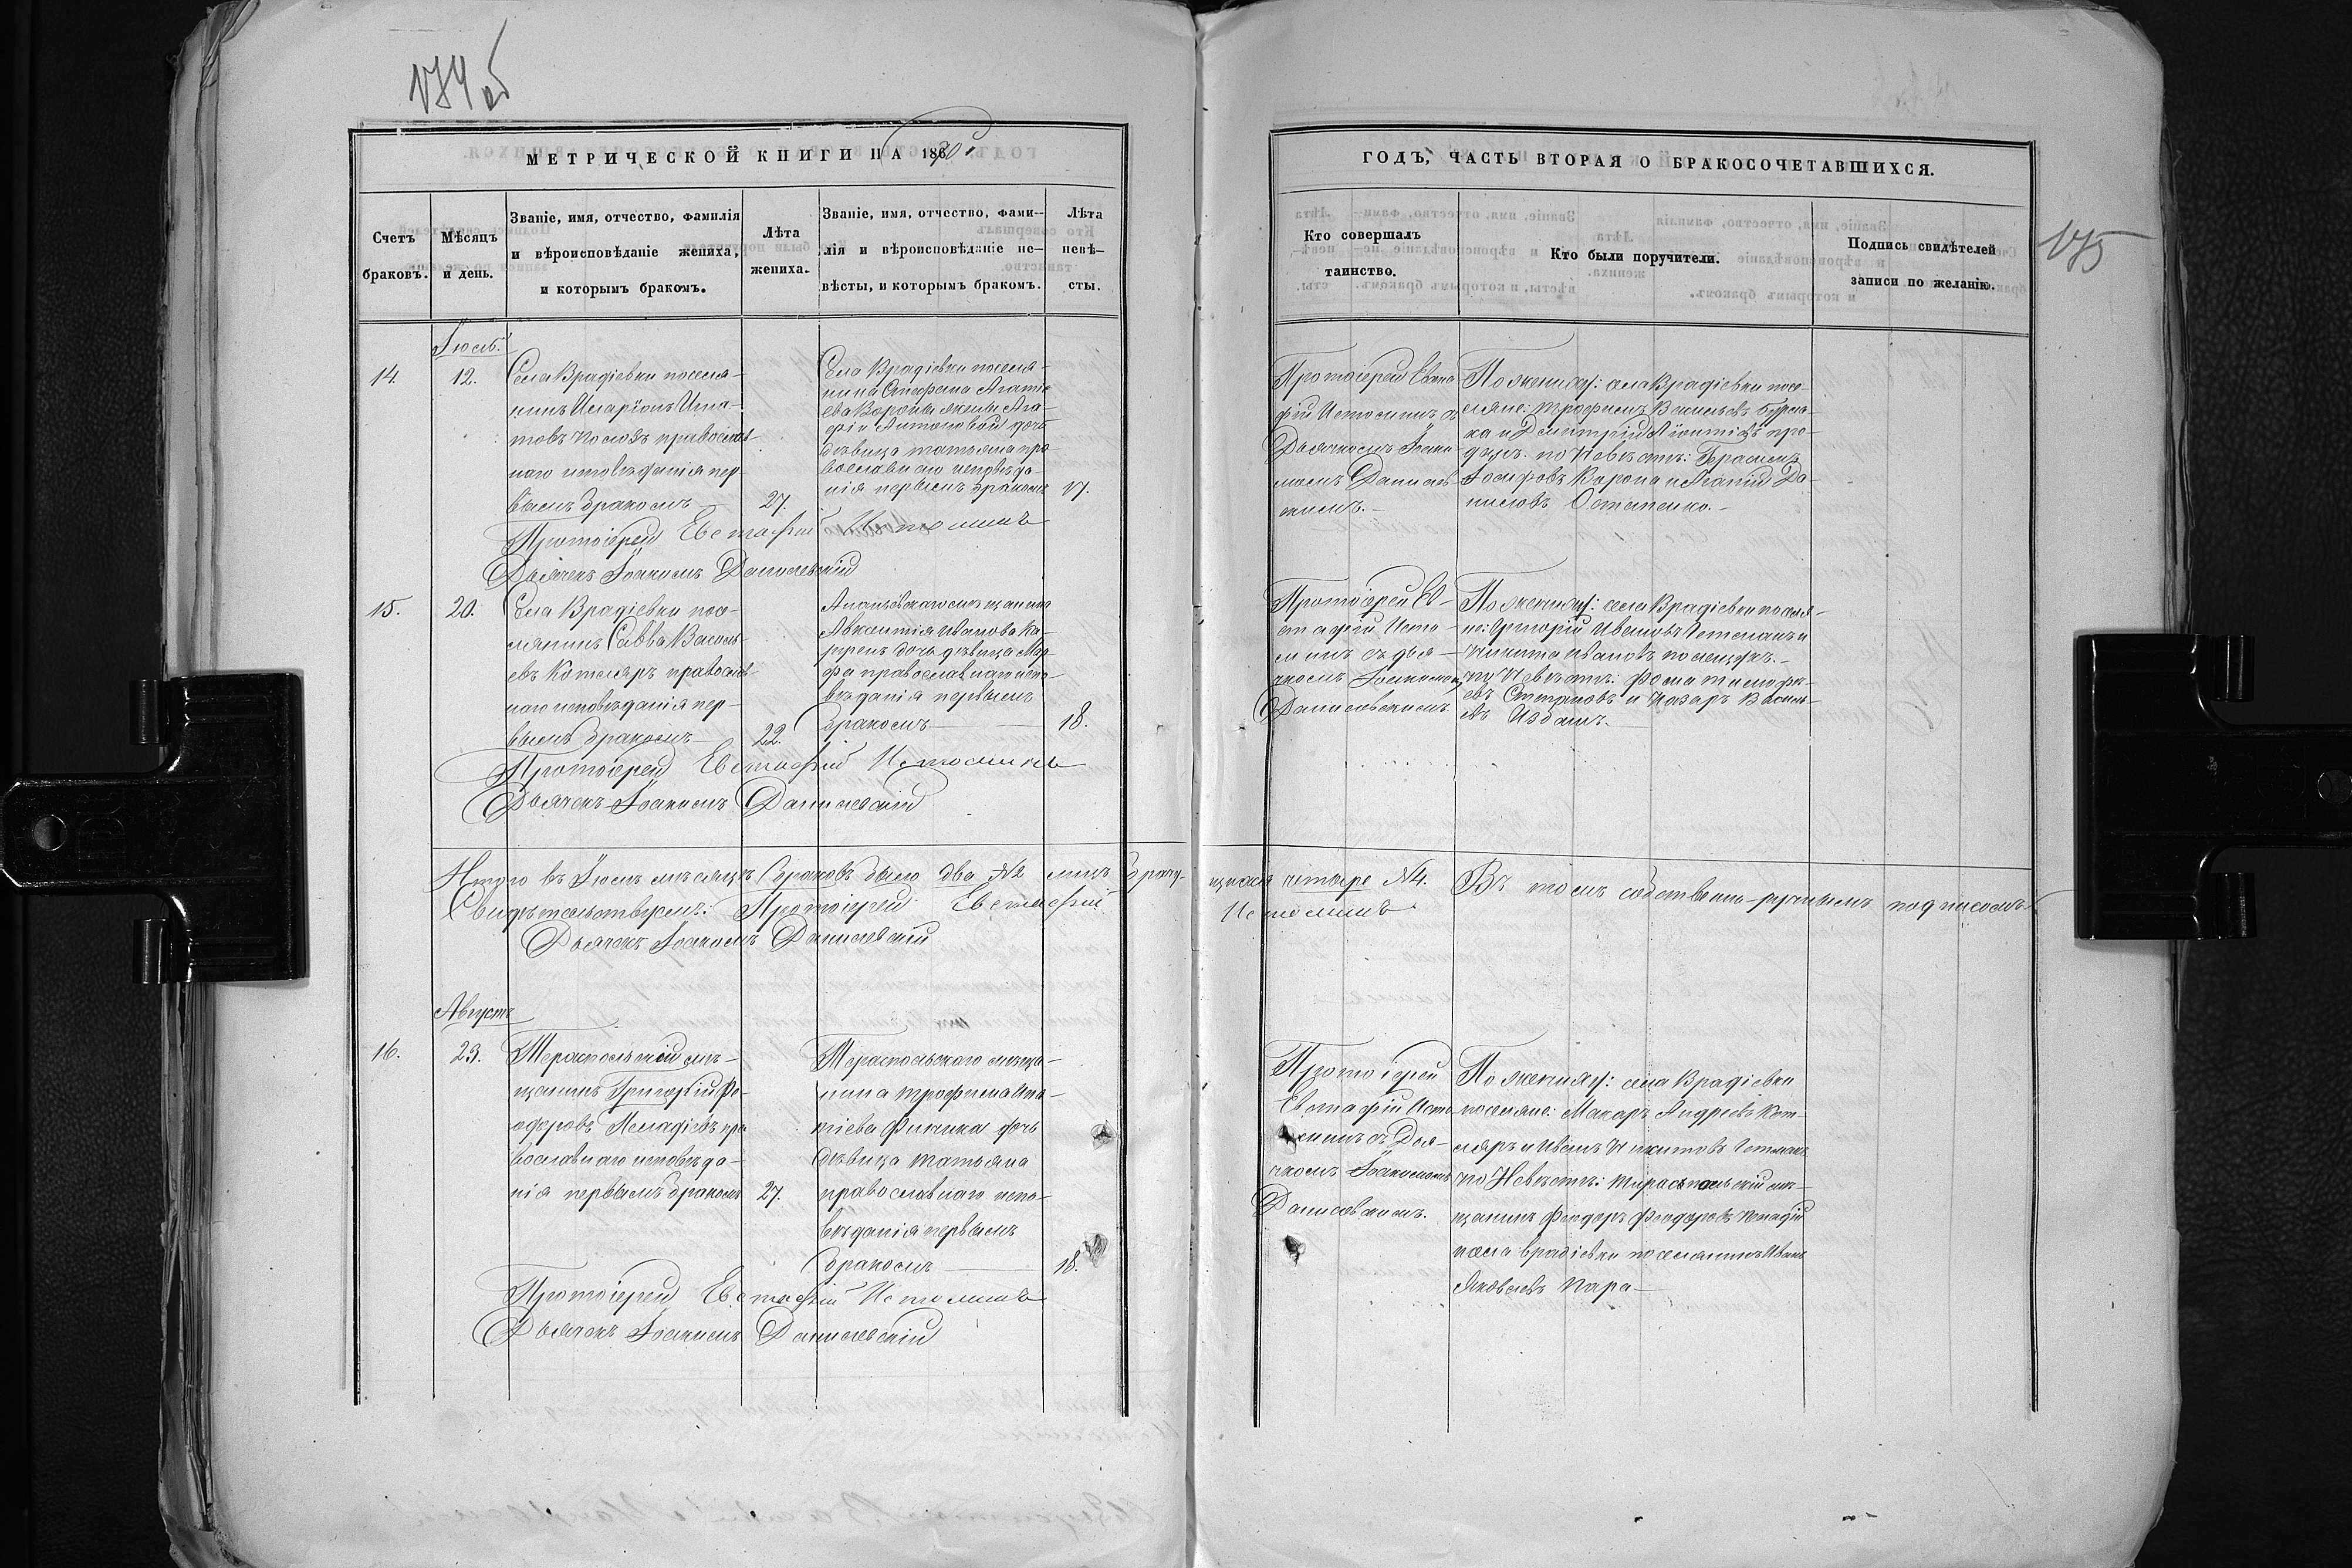 174 об
МЕТРИЧЕСКОЙ КНИГИ НА 1870
ГОДЪ, ЧАСТЬ ВТОРАЯ О БРАКОСОЧЕТАВШИХСЯ.
175
Счетъ
браковъ.
Мѣсяцъ
и день.
Званіе, имя, отчество, фамилія
и вѣроисповѣданіе жениха,
и которымъ бракомъ.
Лѣта
жениха.
Званіе, имя, отчество, фами--
лія и вѣроисповѣданіе не--
вѣсты, и которымъ бракомъ.
Лѣта
невѣ-
сты.
Кто совершалъ
таинство.
Кто были поручители.
Подпись свидѣтелей
записи по желанію.
Іюль.
14.
12.
Села Врадіевки поселя-
нинъ Иларіонъ Игна-
товъ православ-
наго исповѣданія пер-
вымъ бракомъ
27.
Села Врадіевки поселя-
нина Стефана
ева Вороны жены Ага-
фіи Антоновой дочь
дѣвица татьяна пра
вославнаго исповѣда-
нія первымъ бракомъ
17.
Протоіерей Евста-
фій Истоминъ съ
Дьячкомъ Іоаки-
момъ Данилев-
скимъ.-
По женихѣ: села Врадіевки посе-
ляне: трофимъ Васильевъ
ка и Димитрій
по Невѣстѣ: Герасимъ
Іосифовъ Ворона и Да-
ниловъ Остапенко.-
Протоіерей Евстафій Истоминъ
Дьячекъ Іоакимъ Данилевскій
15.
20.
Села Врадіевки посе-
лянинъ Савва Василь-
евъ Котляръ православ-
наго исповѣданія пер-
вымъ бракомъ
22.
Ананьевскаго мѣщанина
Авксентія Иванова Ка-
дочь дѣвица Мар-
фа православнаго испо-
вѣданія первымъ
бракомъ
18.
Протоіерей Ев-
стафій Исто-
минъ съ дья-
чкомъ Іоакимомъ
Данилевскимъ.
По женихѣ: села Врадіевки поселя-
не: Григорій Ивановъ Гетманъ и
Никита Ивановъ
по Невѣстѣ: фома тимофѣ-
евъ и Назаръ Василь-
евъ
Протоіерей Евстафій Истоминъ
Дьячекъ Іоакимъ Данилевскій
Итого въ Іюлѣ мѣсяцѣ браковъ было два №2 лицъ брачу-щихся четыре №4. Въ томъ собственно-ручнымъ подписомъ
Свидѣтельствуемъ: Протоіерей Евстафій Истоминъ
Дьячекъ Іоакимъ Данилевскій
Августъ
16.
23.
Тераспольскій мѣ-
щанинъ Григорій Фе-
одоровъ пра
вославнаго исповѣда-
нія первымъ бракомъ
27.
Тераспольскаго мѣща-
нина трофима Игна-
тіева дочь
дѣвица татьяна
православнаго испо-
вѣданія первымъ
бракомъ
18.
Протоіерей
Евстафій Исто-
минъ съ Дья-
чкомъ Іоакимомъ
Данилевскимъ.
По женихѣ: села Врадіевки
поселяне: Макаръ Андреевъ Кот-
ляръ и Иванъ Никитовъ Гетманъ
по Невѣстѣ: тираспольскій мѣ-
щанинъ Феодоръ Феодоровъ
и села врадіевки поселянинъ Иванъ
Яковлевъ
Протоіерей Евстафій Истоминъ
Дьячекъ Іоакимъ Данилевскій